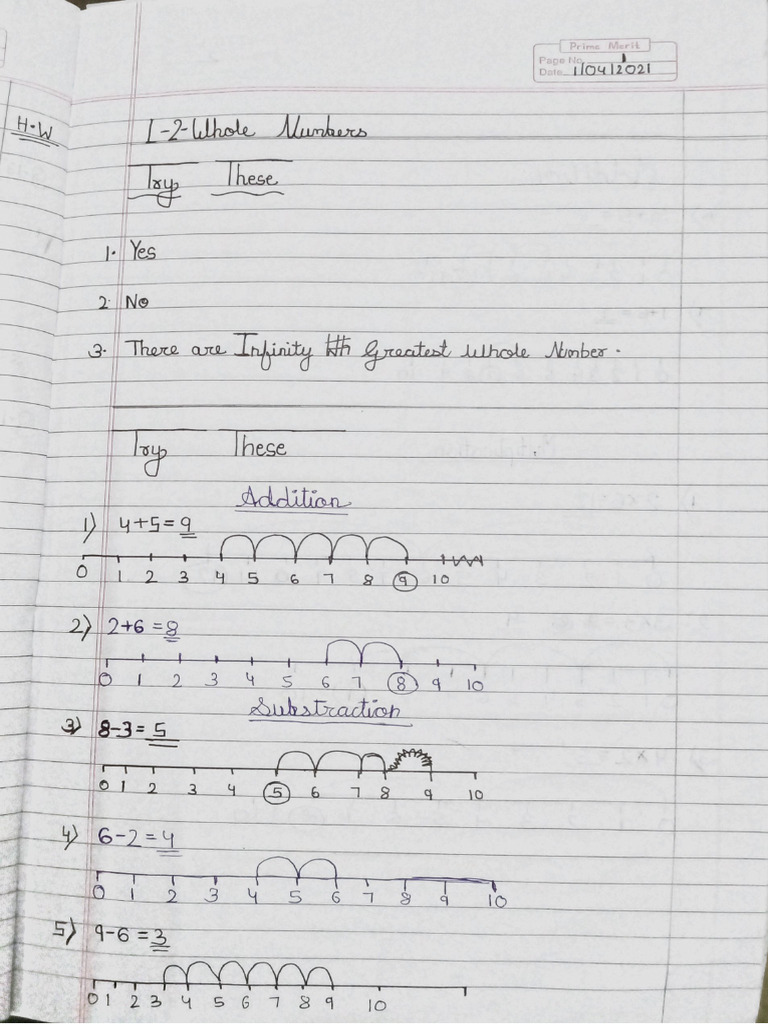 Prime Merit
Page No. 1
Date 1/04/2021
H.W
L-2-Whole Numbers
Try These
1. Yes
2. No
3. There are Infinity Greatest Whole Number.
Try These
Addition
1) 4+5=9
0 1 2 3 4 5 6 7 8 9 10
2) 2+6=8
0 1 2 3 4 5 6 7 8 9 10
Substraction
3) 8-3=5
0 1 2 3 4 5 6 7 8 9 10
4) 6-2=4
0 1 2 3 4 5 6 7 8 9 10
5) 9-6=3
0 1 2 3 4 5 6 7 8 9 10